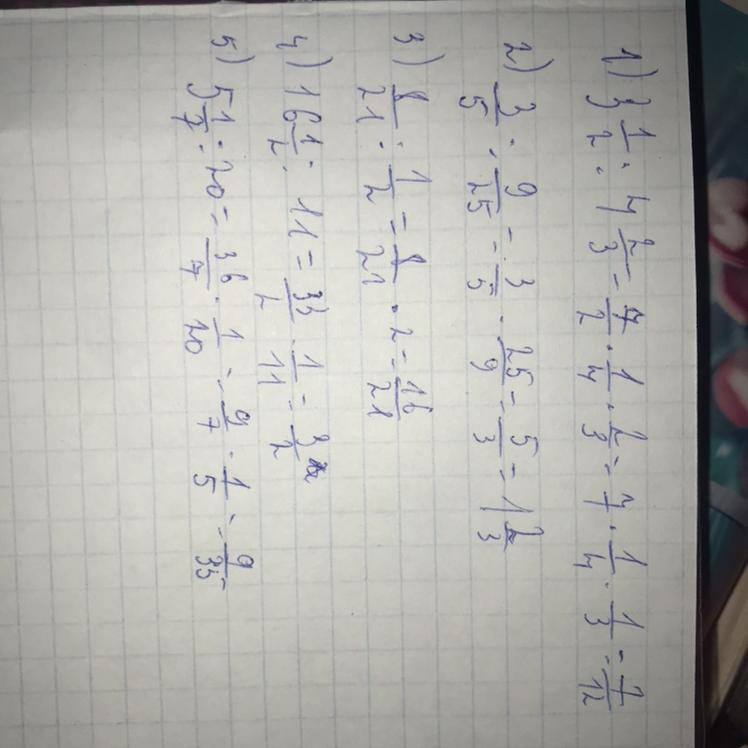 1) 3 1/2 : 4 2/3 = 7/2 · 1/4 · 2/3 = 7/1 · 1/4 · 1/3 = 7/12
2) 3/5 : 9/25 = 3/5 · 25/9 = 5/3 = 1 2/3
3) 8/21 : 1/2 = 8/21 · 2 = 16/21
4) 16 1/2 : 11 = 33/2 · 1/11 = 3/2
5) 5 1/7 : 20 = 36/7 · 1/20 = 9/7 · 1/5 = 9/35